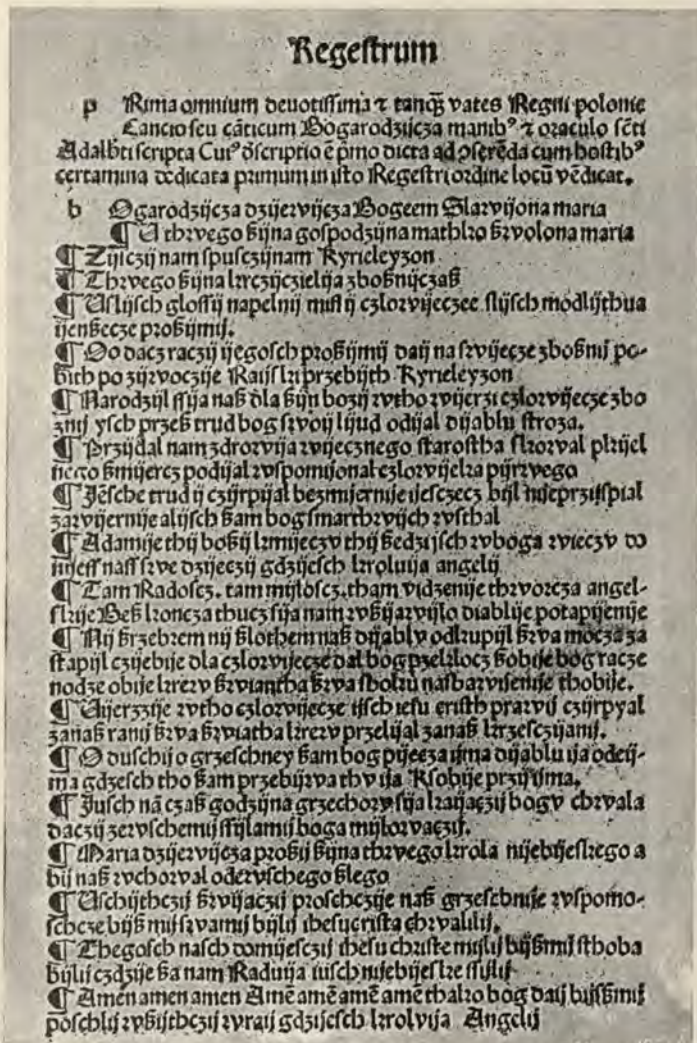 Regestrum
p Rima omnium deuotissima ⁊ tanqȝ vates Regni polonie
Cancio seu cāticum Bogarodzijcza manibꝰ ⁊ oraculo sc̄ti
Adalbti scripta Cuiꝰ d̄scriptio ē pmo dicta ad ꝯserēda cum hostibꝰ
certamina dedicata primum in isto Regestri ordine locū vēdicat.
b Ogarodzijcza dzijewijcza Bogeem Slawijona maria
¶ U thwego ßijna gospodzijna mathko ßwolona maria
¶ Zijsczij nam spusczijnam Kyrieleyzon
¶ Thwego ßijna krczijczielija zboßnijczaß
¶ Uslijsch glossij napelnij misl ij czlowijeczee slijsch modlijthua
ijenßecze proßijmij.
¶ Oo dacz raczij ijegosch proßijmij daij na swijecze zboßnij po-
bith po zijwoczije Raijski przebijth Kyrieleyzon
¶ Narodzijl ssija naß dla ßijn bozij wtho wijerzi czlowijecze zbo
znij ysch przeß trud bog swoij lijud odijal dijablu stroza.
¶ Przijdal nam zdrowija wijecznego starostha skowal pkijel
nego ßmijercz podijal wspomijonal czlowijeka pijrwego
¶ Jēsche trud ij czijrpijal bezmijernije ijesczecz bijl nijeprzijspial
zawijernije alijsch ßam bog smarthwijch wsthal
¶ Adamije thij boßij kmijeczv thij ßedzijsch wboga wieczv do
mijess nass swe dzijeczij gdzijesch kroluija angelij
¶ Tam Radoscz. tam mijloscz. tham vidzenije thworcza angel-
skije Beß koncza thucz sija nam wßijawijlo diablije potapijenije
¶ Nij ßrzebrem nij ßlothem naß dijablv odkupijl ßwa mocza za
stapijl czijebije dla czlowijecze dal bog przeklocz ßobije bog racze
nodze obije krew ßwiantha ßwa sboku nasbawisenije thobije.
¶ Uijerzije wtho czlowijecze ijsch iesu cristh prawij czijrpyal
zanaß ranij ßwa ßwiatha krew przelijal zanaß krzesczijanij.
¶ O duschij o grzeschney ßam bog pijecza ijma dijablu ija odeij-
ma gdzesch tho ßam przebijwa thv ija Ksobije prziijma.
¶ Jusch nā czaß godzijna grzechow sija kaijaczij bogv chwala
daczij zewschemij ssijlamij boga mijlowaczij.
¶ Maria dzijewijcza proßij ßijna thwego krola nijebijeskego a
bij naß wchowal odewschego ßlego
¶ Uschijthczij ßwijaczij proschczije naß grzeschnije wspomo-
schcze bijß mij swamij bijlij ihesucrista chwalilij.
¶ Thegosch nasch domijesczij ihesu christe mijlij bijßmij sthoba
bijlij czdzije ßa nam Raduija iusch nijebijeske ssijlij
¶ Amen amen amen Amē amē amē amē thako bog daij bijsßmij
poschlij wßijthczij wraij gdzijesch krolvija Angelij